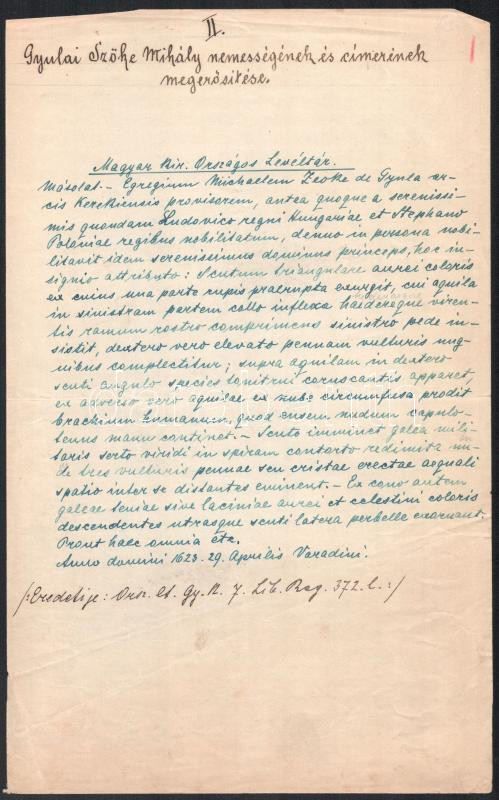 II.
Gyulai Szőke Mihály nemességének és címerének
megerősítése.
Magyar Kir. Országos Levéltár.
Másolat. - Egregium Michaelem Zeoke de Gyula ar-
cis Kerekiensis provisorem, antea quoque a serenissi-
mis quondam Ludovico regni Hungariae et Stephano
Poloniae regibus nobilitatum, denuo in persona nobi-
litavit idem serenissimus dominus princeps, hoc in-
signio attributo: Scutum triangulare aurei coloris
ex cuius una parte rupis praerupta exurgit, cui aquila
in sinistram partem collo inflexa haedercque viren-
tis ramum rostro comprimens sinistro pede in-
sistit, dextero vero elevato pennam vulturis ung-
uibus complectitur; supra aquilam in dextero
scuti angulo species tonitrui coruscantis apparet,
ex adverso vero aquilae ex nube circumfusa prodit
brachium humanum, quod ensem nudum capulo-
tenus manu continet. - Scuto imminet galea mili-
taris serto viridi in spiram contorto redimita un-
de tres vulturis pennae seu cristae erectae aequali
spatio inter se distantes eminent. - Ex cono autem
galeae teniae sive laciniae aurei et celestini coloris
descendentes utrasque scuti latera perbelle exornant.
Prout haec omnia etc.
Anno domini 1623. 29. Aprilis Varadini.
/:Eredetije: Orsz. lt. Gy. K. 7. Lib. Reg. 372. l. :/